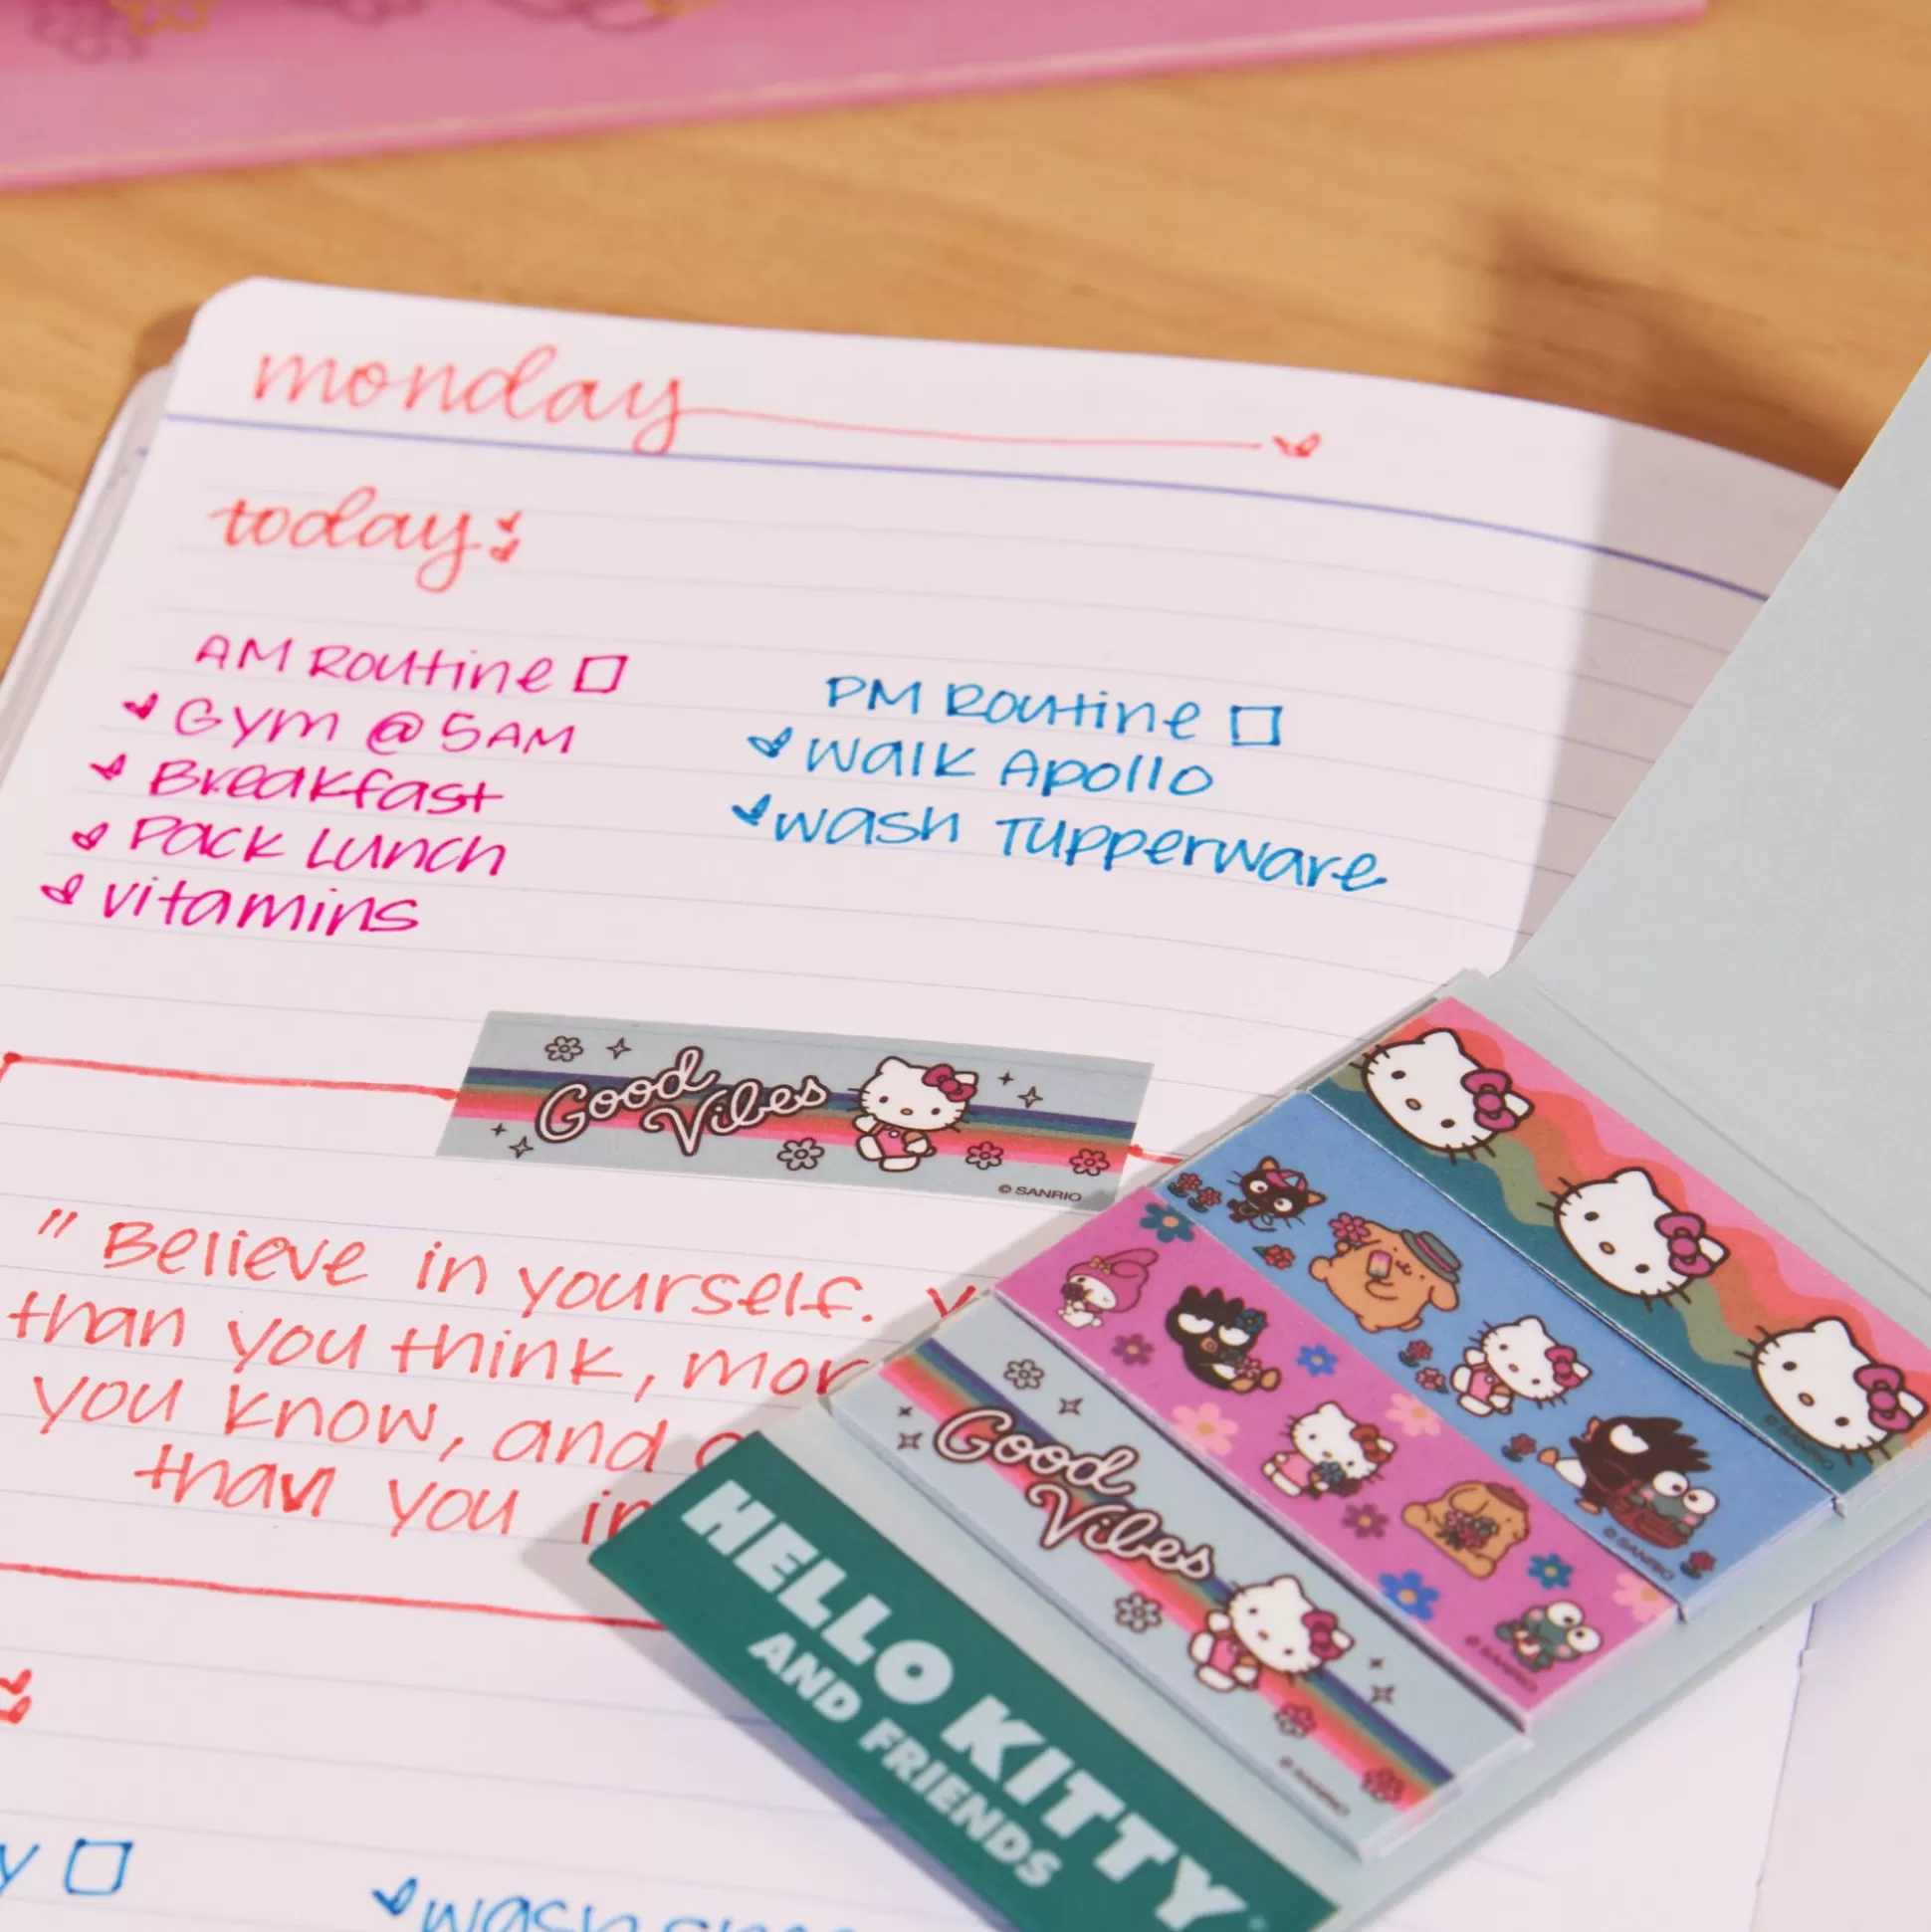 monday
today:
AM Routine
Gym @ 5AM
Breakfast
Pack Lunch
vitamins
PM Routine
walk Apollo
wash Tupperware
Good
Vibes
© SANRIO
" Believe in yourself.
than you think,
you know, and
than you
wash
Good
Vibes
© SANRIO
© SANRIO
© SANRIO
© SANRIO
HELLO KITTY
AND FRIENDS